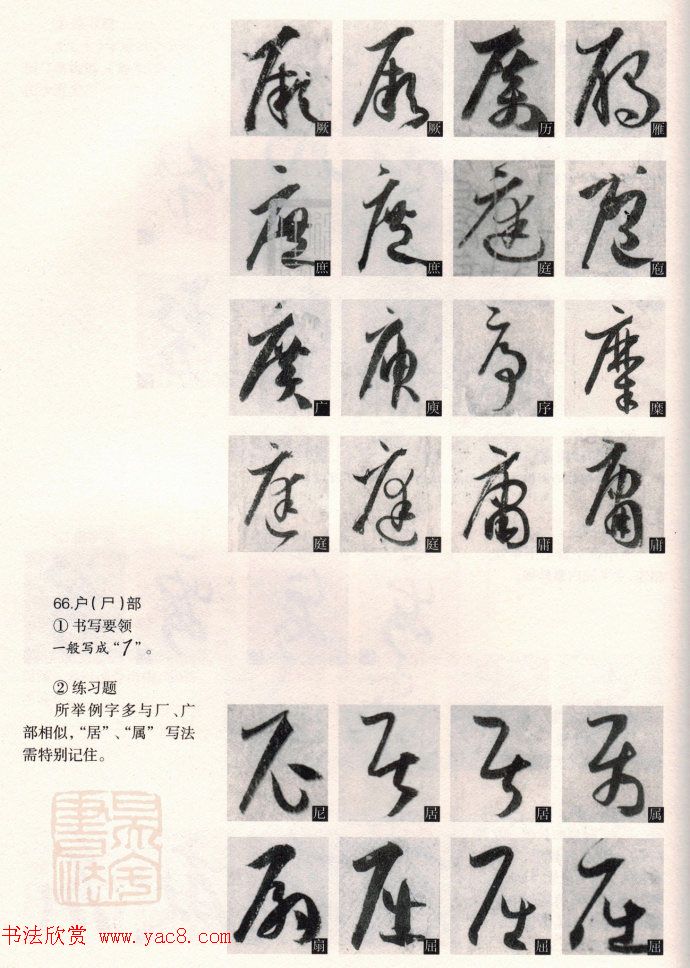 厥 厥 历 雁
庶 庶 庭 庖
广 庾 序 糜
庭 庭 庸 庸
66.户(尸)部
① 书写要领
一般写成“ ”。
② 练习题
所举例字多与厂、广
部相似，“居”、“属” 写法
需特别记住。
尼 居 居 属
扇 屈 屈 屈
书法欣赏 www.yac8.com